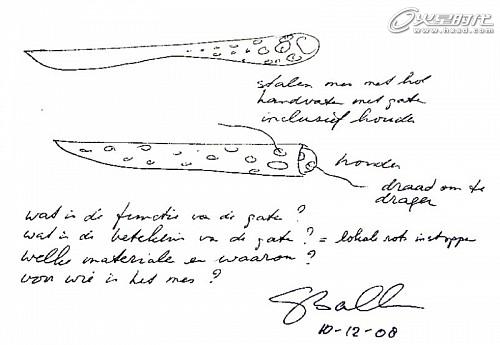 火星时代
www.hxsd.com
stalen mes met hol
handvaten met gaten
inclusief houder
houder
draad om te
dragen
wat is de functie van de gaten?
wat is de betekenis van de gaten? = lokale rots in stoppen
welke materialen en waarom?
voor wie is het mes?
10-12-08